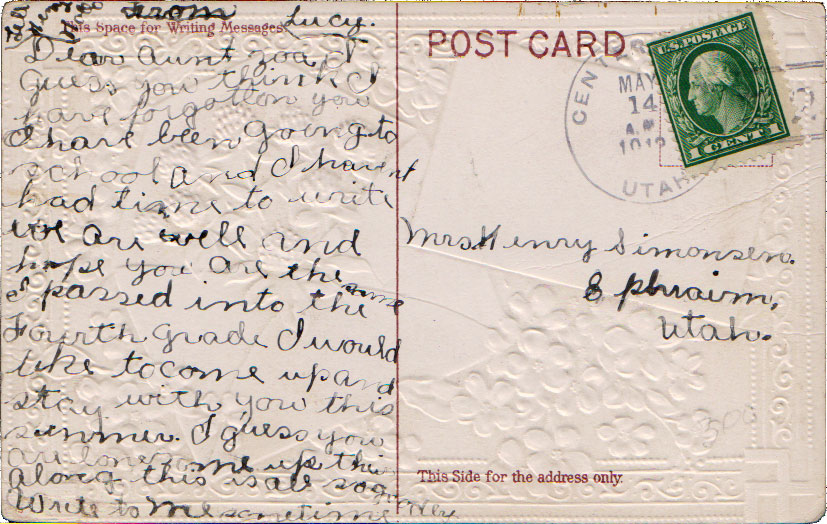 from Lucy.
This Space for Writing Messages
Dear aunt Zoa, I
guess you think I
have forgotton you
I have been going to
school and I havent
had time to write
we are well and
hope you are the same
I passed into the
Fourth grade I would
like to come up and
stay with you this
summer. I guess you
are lonesome up there
along this is all so
Write to me sometime
POST CARD
CENTER
MAY
14
A.M.
UTAH
U.S. POSTAGE
1 CENT 1
Mrs Henry Simonsen.
Ephraim,
Utah.
300
This Side for the address only.